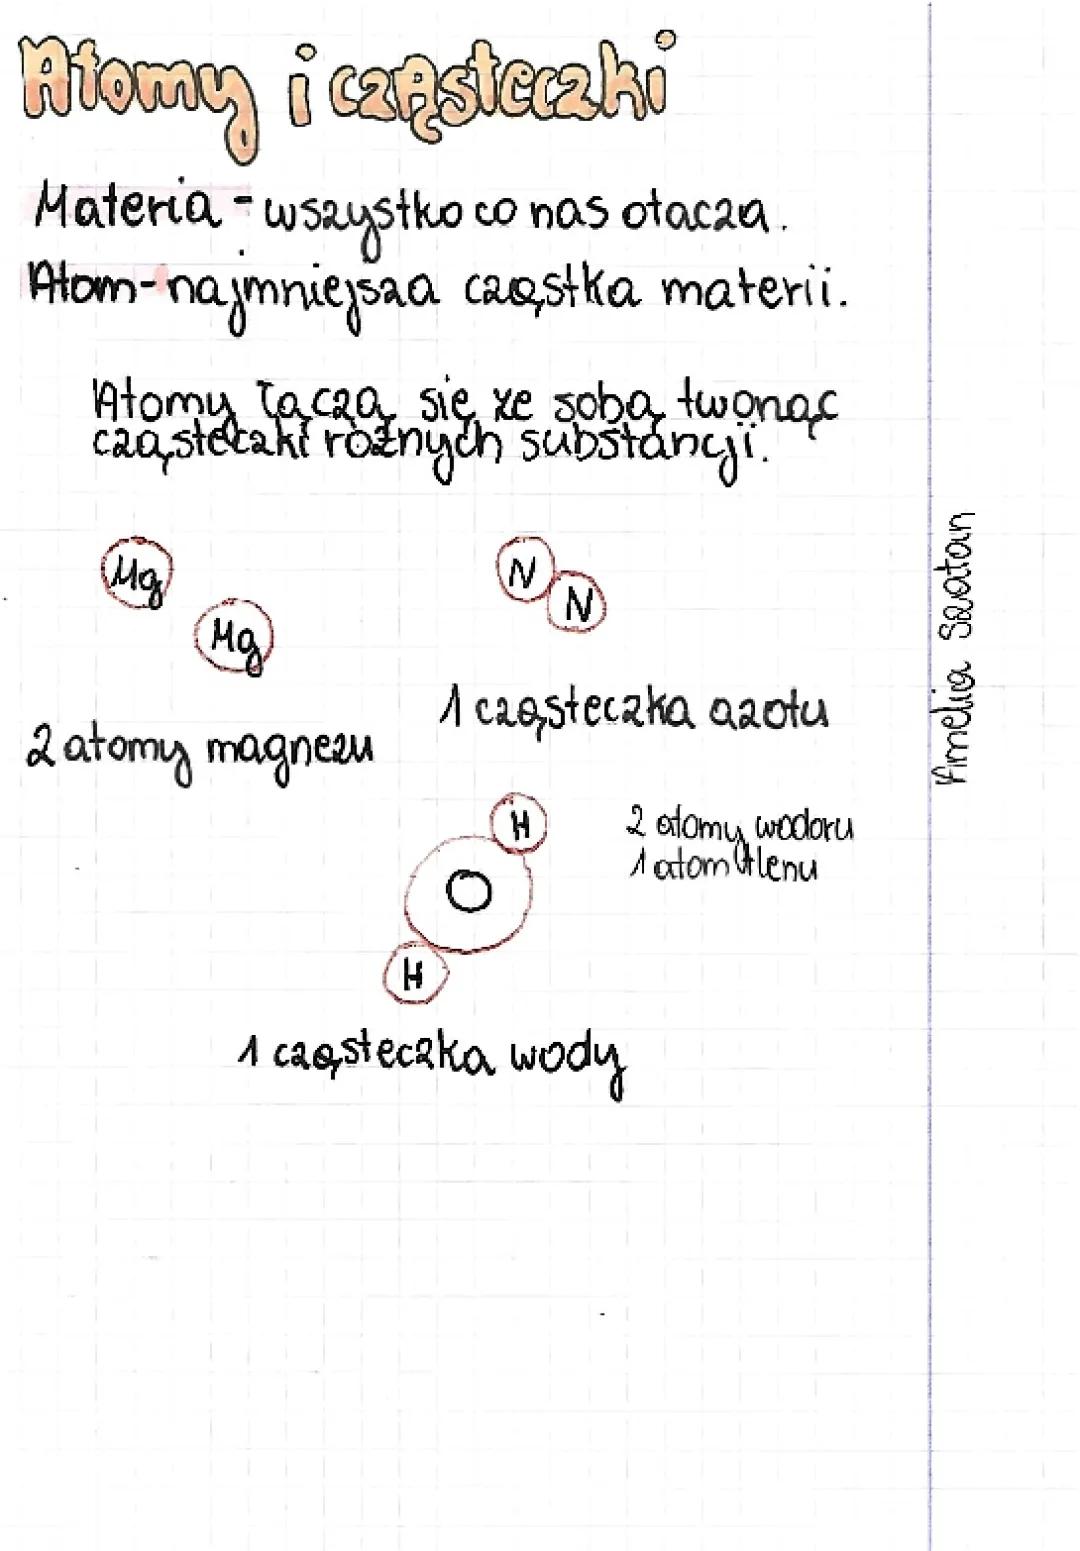 Atomy i cząsteczki
Materia - wszystko co nas otacza.
Atom - najmniejsza cząstka materii.
Atomy łączą się ze sobą tworząc
cząsteczki różnych substancji.
Mg
Mg
N
N
2 atomy magnezu
1 cząsteczka azotu
H
O
H
2 atomy wodoru
1 atom tlenu
1 cząsteczka wody
Amelia Szatan